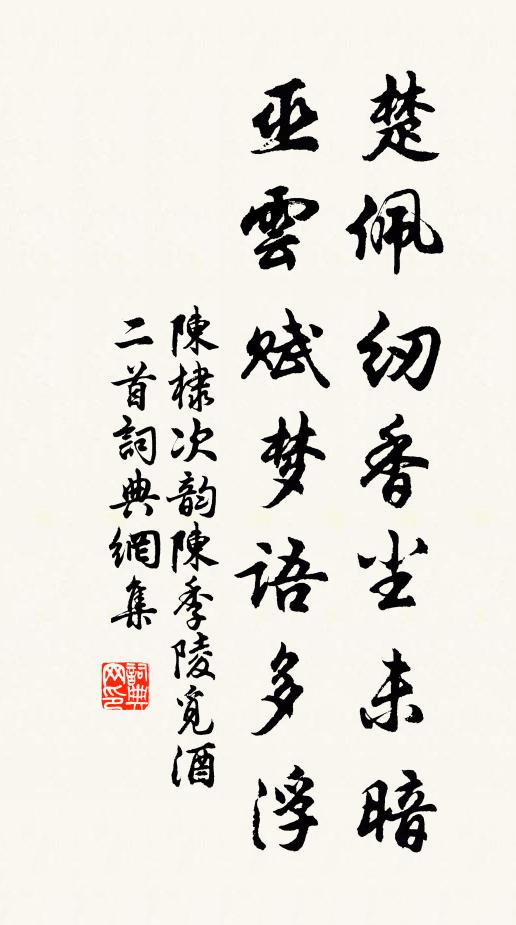 楚佩纫香尘未暗
巫雲赋梦語多浮
陳棣次韵陳季陵觅酒
二首詞典網集
詞典网印